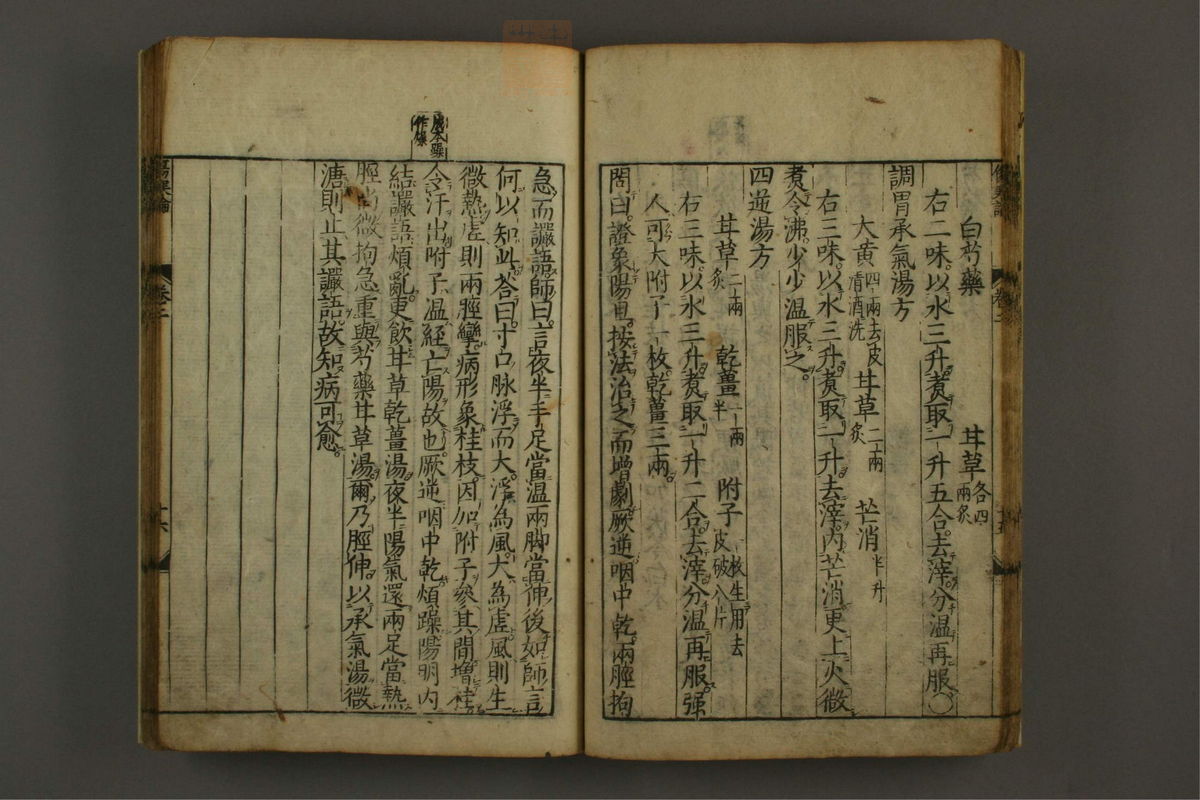 白芍藥 甘草各四兩炙
右二味以水三升煑取一升五合去滓分温再服〇
調胃承氣湯方
大黄四兩去皮清酒洗 甘草二兩炙 芒消半升
右三味以水三升煑取一升去滓内芒消更上火微
煑令沸少少温服之
四逆湯方
甘草二兩炙 乾薑一兩半 附子一枚生用去皮破八片
右三味以水三升煑取一升二合去滓分温再服强
人可大附子一枚乾薑三兩
問曰證象陽旦按法治之而增劇厥逆咽中乾兩脛拘
傷寒論 卷二 十五
急而讝語師曰言夜半手足當温兩脚當伸後如師言
何以知此荅曰寸口脉浮而大浮為風大為虚風則生
微熱虚則兩脛攣病形象桂枝因加附子參其間增桂
令汗出附子温経亡陽故也厥逆咽中乾煩躁陽明内
結讝語煩亂更飲甘草乾薑湯夜半陽氣還兩足當熱
脛尚微拘急重與芍藥甘草湯爾乃脛伸以承氣湯微
溏則止其讝語故知病可愈
傷寒論 卷二 十六